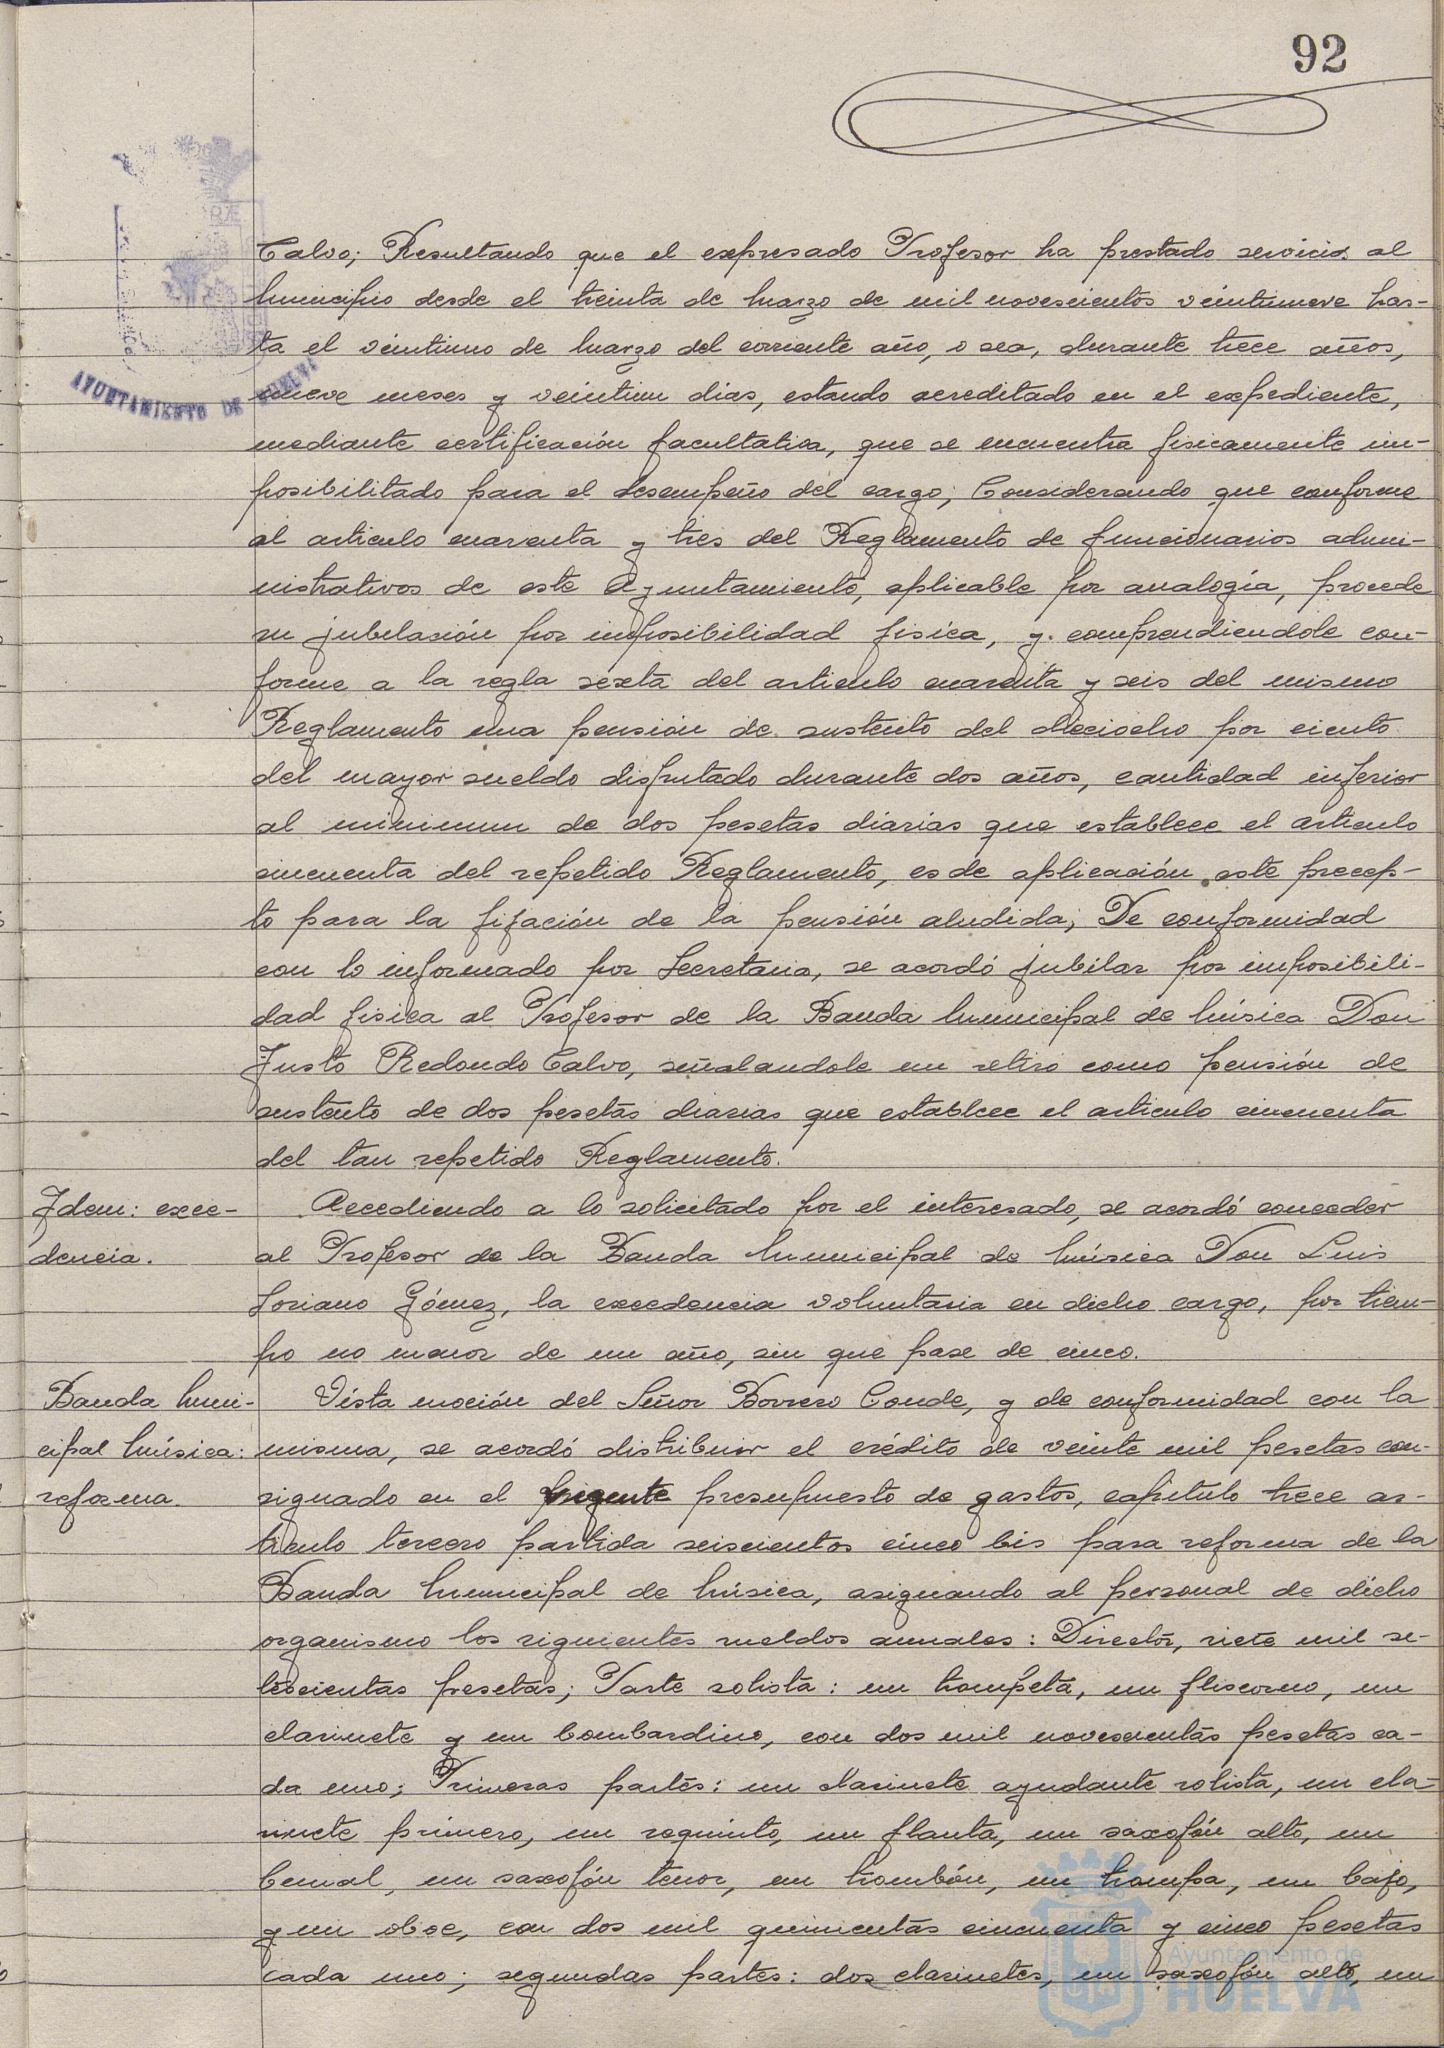 92
AYUNTAMIENTO DE HUELVA
Calvo; Resultando que el expresado Profesor ha prestado servicios al
Municipio desde el treinta de Marzo de mil novescientos veintinueve has-
ta el veintiuno de Marzo del corriente año, o sea, durante trece años,
nueve meses y veintiun dias, estando acreditado en el expediente,
mediante certificación facultativa, que se encuentra fisicamente im-
posibilitado para el desempeño del cargo; Considerando que conforme
al articulo cuarenta y tres del Reglamento de funcionarios admi-
nistrativos de este Ayuntamiento, aplicable por analogía, procede
su jubilación por imposibilidad fisica, y comprendiendole con-
forme a la regla sexta del articulo cuarenta y seis del mismo
Reglamento una pensión de sustento del dieciocho por ciento
del mayor sueldo disfrutado durante dos años, cantidad inferior
al minimum de dos pesetas diarias que establece el articulo
cincuenta del repetido Reglamento, es de aplicación este precep-
to para la fijación de la pensión aludida; De conformidad
con lo informado por Secretaria, se acordó jubilar por imposibili-
dad fisica al Profesor de la Banda Municipal de Música Don
Justo Redondo Calvo, señalandole un retiro como pensión de
sustento de dos pesetas diarias que establece el articulo cincuenta
del tan repetido Reglamento.
Idem: exce-
dencia.
Accediendo a lo solicitado por el interesado, se acordó conceder
al Profesor de la Banda Municipal de Música Don Luis
Soriano Gómez, la excedencia voluntaria en dicho cargo, por tiem-
po no menor de un año, sin que pase de cinco.
Banda Muni-
cipal Música:
reforma.
Vista moción del Señor Borrero Conde, y de conformidad con la
misma, se acordó distribuir el crédito de veinte mil pesetas con-
signado en el vigente presupuesto de gastos, capitulo trece ar-
ticulo tercero partida seiscientos cinco bis para reforma de la
Banda Municipal de Música, asignando al personal de dicho
organismo los siguientes sueldos anuales: Director, siete mil se-
tescientas pesetas; Parte solista: un trompeta, un fliscorno, un
clarinete y un bombardino, con dos mil novescientas pesetas ca-
da uno; Primeras partes: un clarinete ayudante solista, un cla-
rinete primero, un requinto, un flauta, un saxofón alto, un
bemal, un saxofón tenor, un trombón, un trompa, un bajo,
y un oboe, con dos mil quinientas cincuenta y cinco pesetas
cada uno; segundas partes: dos clarinetes, un saxofón alto, un
Ayuntamiento de
HUELVA